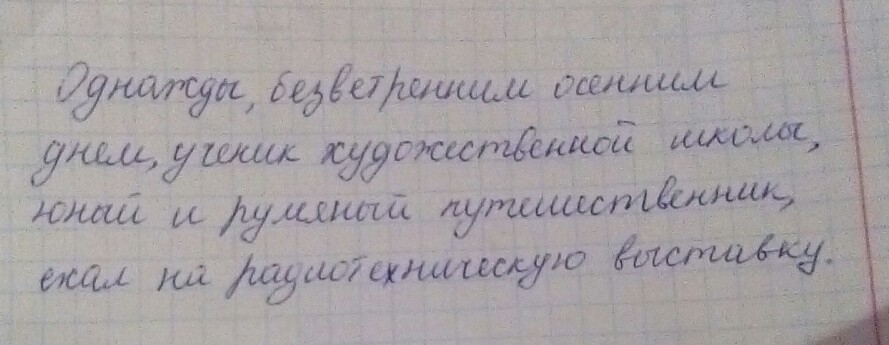 Однажды, безветренним осенним
днем, ученик художественной школы,
юный и румяный путешественник,
ехал на радиотехническую выставку.